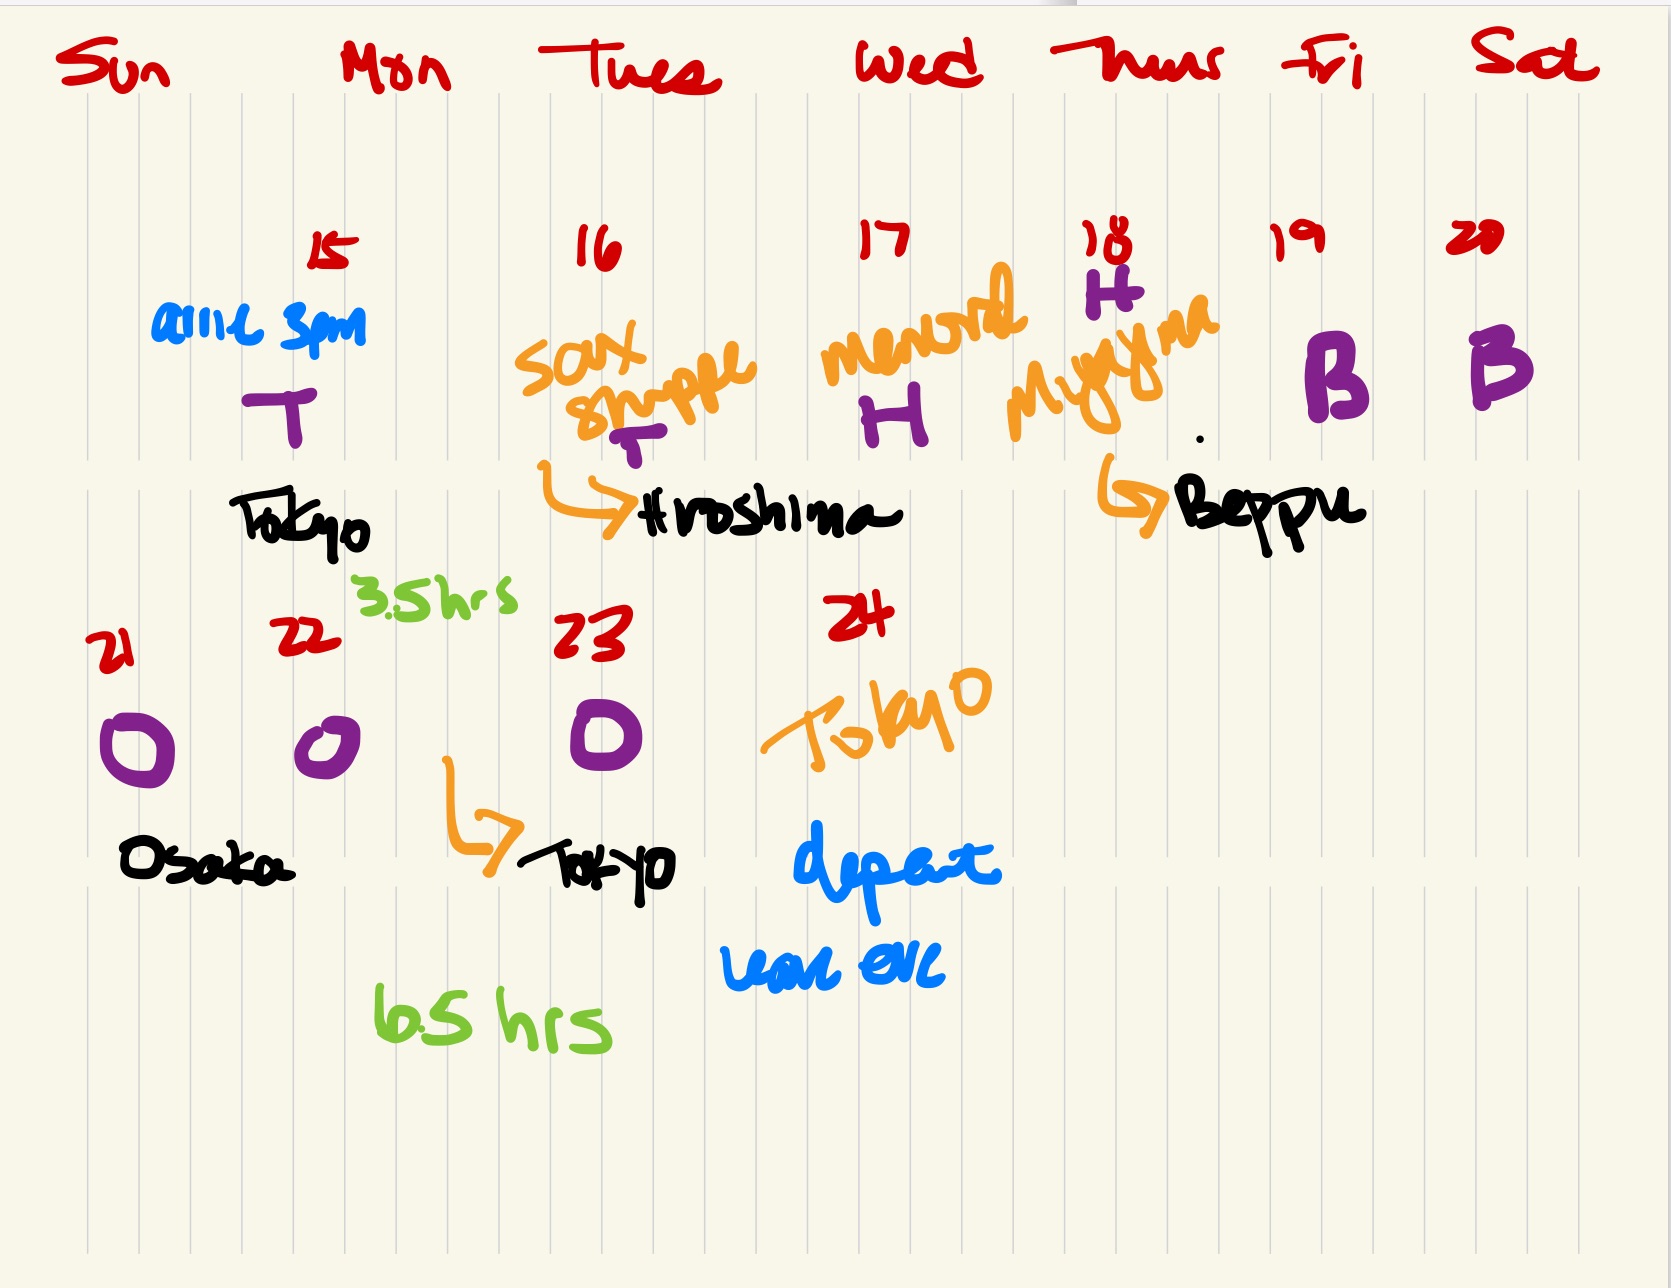 Sun Mon Tues Wed Thurs Fri Sat
15 16 17 18 19 20
arrive 3pm
sax
shoppe
memorial
H
Miyajima
T T H B B
Tokyo Hiroshima Beppu
3.5 hrs
21 22 23 24
O O O Tokyo
Osaka Tokyo depart
leave eve
6.5 hrs